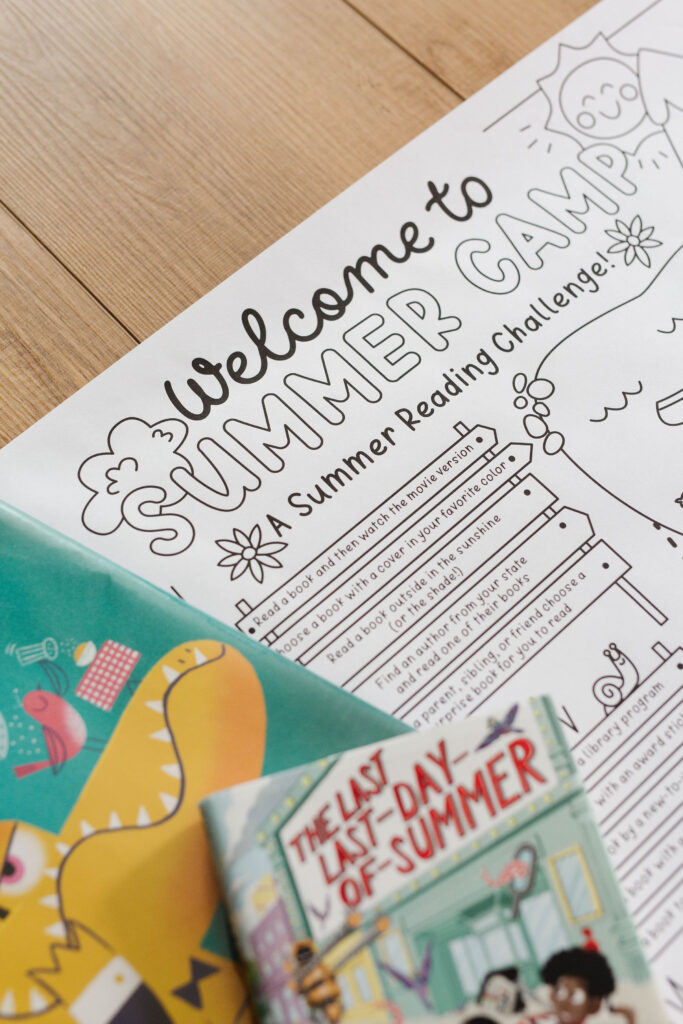 Welcome to
SUMMER CAMP
A Summer Reading Challenge!
Read a book and then watch the movie version
hoose a book with a cover in your favorite color
Read a book outside in the sunshine
(or the shade!)
Find an author from your state
and read one of their books
a parent, sibling, or friend choose a
rprise book for you to read
a library program
with an award stick
or by a new-to-
book with a
book to
THE LAST
LAST-DAY-
OF-SUMMER